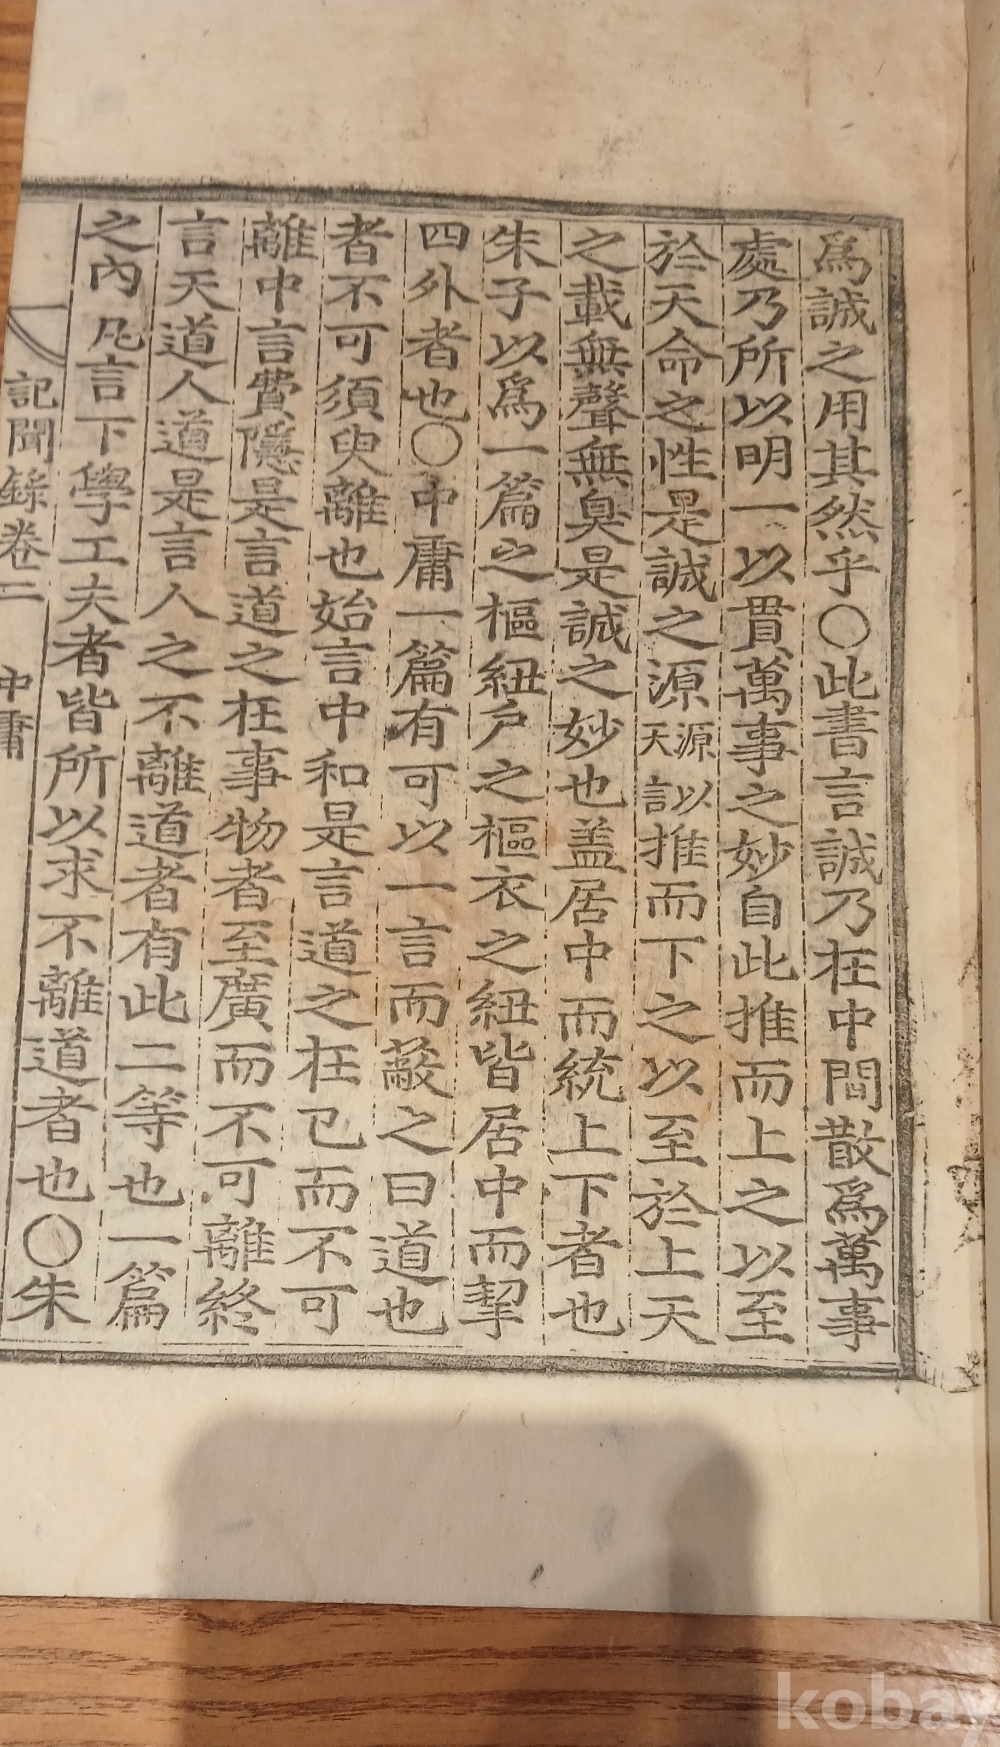 爲誠之用其然乎〇此書言誠乃在中間散爲萬事
處乃所以明一以貫萬事之妙自此推而上之以至
於天命之性是誠之源源以天言推而下之以至於上天
之載無聲無臭是誠之妙也盖居中而統上下者也
朱子以爲一篇之樞紐戶之樞衣之紐皆居中而挈
四外者也〇中庸一篇有可以一言而蔽之曰道也
者不可須臾離也始言中和是言道之在已而不可
離中言費隱是言道之在事物者至廣而不可離終
言天道人道是言人之不離道者有此二等也一篇
之內凡言下學工夫者皆所以求不離道者也〇朱
記聞錄卷二 中庸
kobay